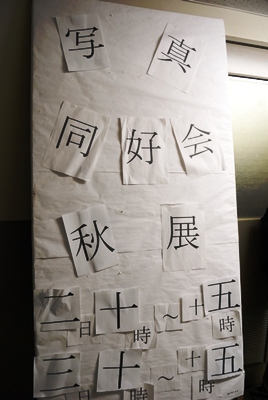 写真
同好会
秋展
二日十時～十五時
三日十時～十五時